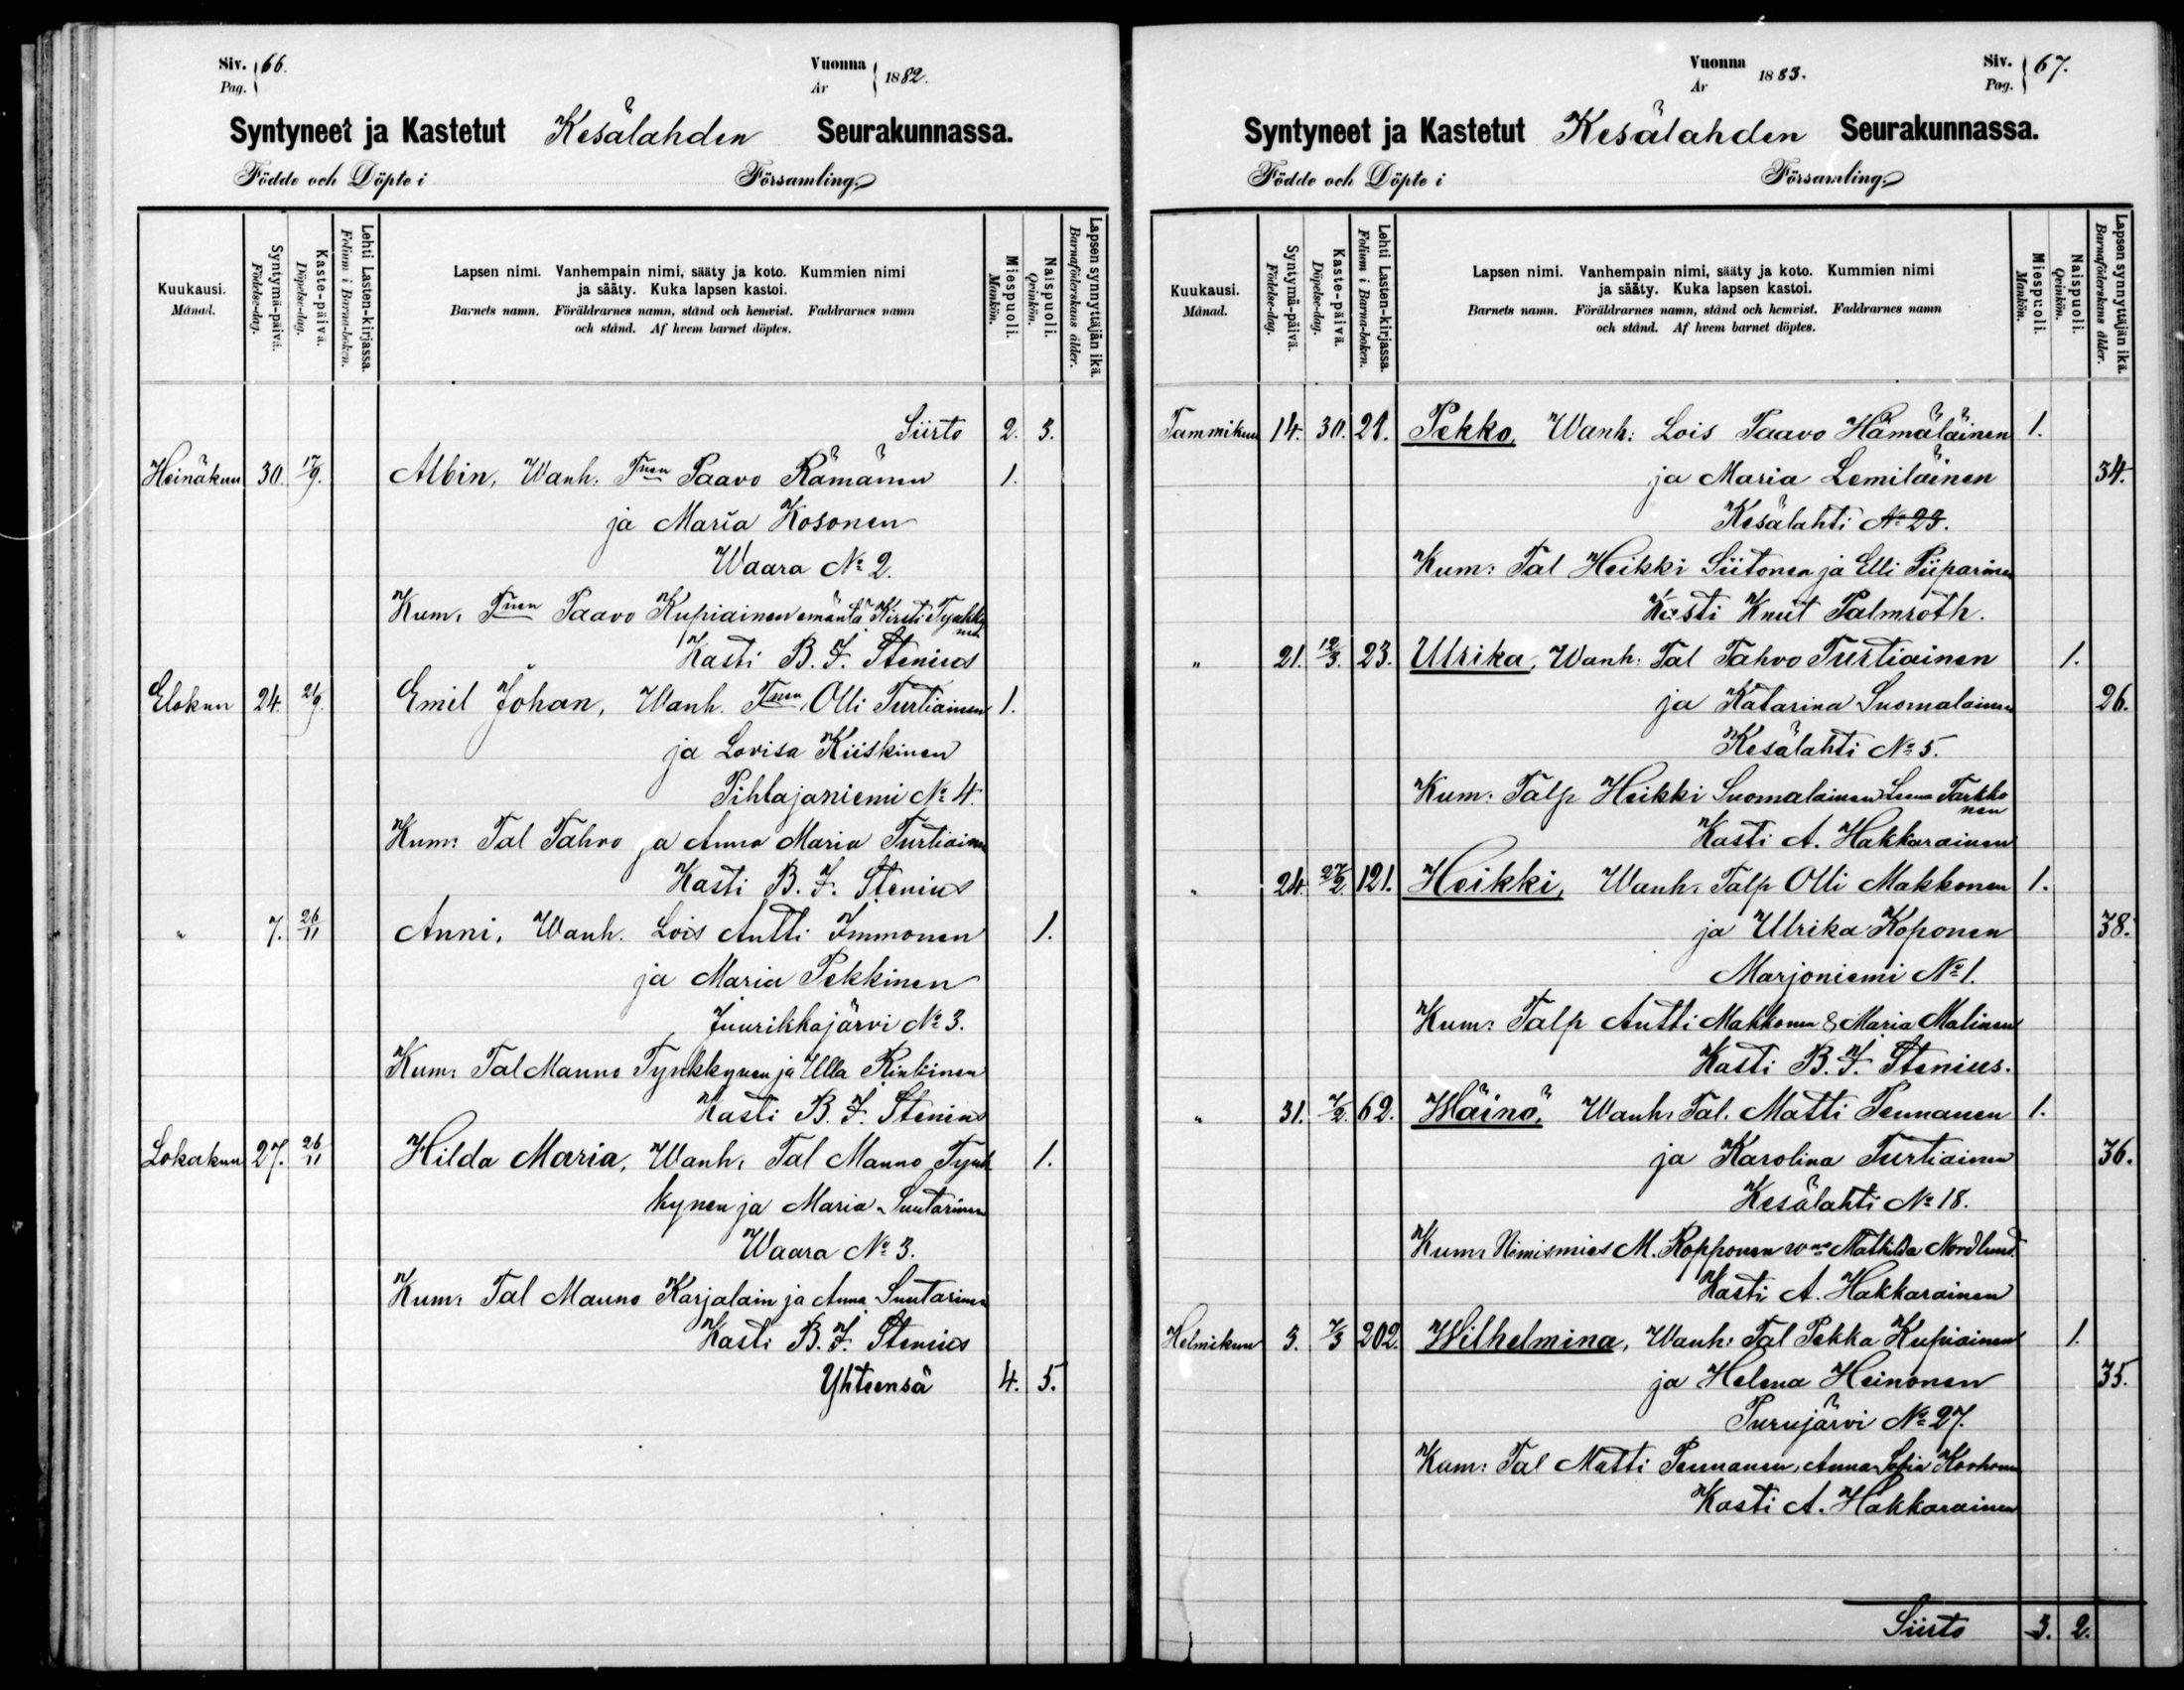 Siv. 66.
Pag.
Vuonna 1882.
År
Syntyneet ja Kastetut Kesälahden Seurakunnassa.
Födde och Döpte i Församling.
Kuukausi.
Månad.
Syntymä-päivä.
Födelse-dag.
Kaste-päivä.
Döpelse-dag.
Lehti Lasten-kirjassa.
Folium i Barna-boken.
Lapsen nimi. Vanhempain nimi, sääty ja koto. Kummien nimi
ja sääty. Kuka lapsen kastoi.
Barnets namn. Föräldrarnes namn, stånd och hemvist. Faddrarnes namn
och stånd. Af hvem barnet döptes.
Miespuoli.
Mankön.
Naispuoli.
Qvinkön.
Lapsen synnyttäjän ikä.
Barnaföderskans ålder.
Siirto 2. 3.
Heinäkuu 30. 17/9. Albin, Wanh. Tnen Paavo Rämänen 1.
ja Maria Kosonen
Waara No 2.
Kum. Tnen Paavo Kupiainen emäntä Kirsti Tynkky
nen
Kasti B. F. Stenius
Elokuu 24. 21/9. Emil Johan, Wanh. Tnen Olli Turtiainen 1.
ja Lovisa Kiiskinen
Pihlajaniemi No 4.
Kum: Tal Tahvo ja Anna Maria Turtiainen
Kasti B. F. Stenius
" 7. 26/11 Anni, Wanh. Lois Antti Immonen 1.
ja Maria Pekkinen
Juurikkajärvi No 3.
Kum: Tal Mauno Tynkkynen ja Ulla Rinkinen
Kasti B. F. Stenius
Lokakuu 27. 26/11 Hilda Maria, Wanh. Tal Manno Tynk
kynen ja Maria Suutarinen 1.
Waara No 3.
Kum: Tal Mauno Karjalain ja Anna Suutarinen
Kasti B. F. Stenius
Yhteensä 4. 5.
Vuonna 1883.
År
Siv. 67.
Pag.
Syntyneet ja Kastetut Kesälahden Seurakunnassa.
Födde och Döpte i Församling.
Kuukausi.
Månad.
Syntymä-päivä.
Födelse-dag.
Kaste-päivä.
Döpelse-dag.
Lehti Lasten-kirjassa.
Folium i Barna-boken.
Lapsen nimi. Vanhempain nimi, sääty ja koto. Kummien nimi
ja sääty. Kuka lapsen kastoi.
Barnets namn. Föräldrarnes namn, stånd och hemvist. Faddrarnes namn
och stånd. Af hvem barnet döptes.
Miespuoli.
Mankön.
Naispuoli.
Qvinkön.
Lapsen synnyttäjän ikä.
Barnaföderskans ålder.
Tammikuu 14. 30. 21. Pekko, Wanh: Lois Paavo Hämäläinen 1.
ja Maria Lemiläinen 34.
Kesälahti No 23.
Kum: Tal Heikki Siitonen ja Elli Piiparinen
Kasti Knut Palmroth.
" 21. 12/3. 23. Ulrika, Wanh: Tal Tahvo Turtiainen 1.
ja Katarina Suomalainen 26.
Kesälahti No 5.
Kum: Talp Heikki Suomalainen Leena Tarkko
nen
Kasti A. Hakkarainen
" 24. 27/2. 121. Heikki, Wanh. Talp Olli Makkonen 1.
ja Ulrika Koponen 38.
Marjoniemi No 1.
Kum: Talp Antti Makkonen & Maria Malinen
Kasti B. F. Stenius.
" 31. 7/2. 62. Wäinö, Wanh. Tal. Matti Pennanen 1.
ja Karolina Turtiainen 36.
Kesälahti No 18.
Kum. Nimismies M. Ropponen Mathilda Nordlund.
Kasti A. Hakkarainen
Helmikuu 3. 7/3 202. Wilhelmina, Wanh: Tal Pekka Kupiainen 1.
ja Helena Heinonen 35.
Purujärvi No 27.
Kum: Tal Matti Pennanen, Anna Sofia Korhonen
Kasti A. Hakkarainen
Siirto 3. 2.